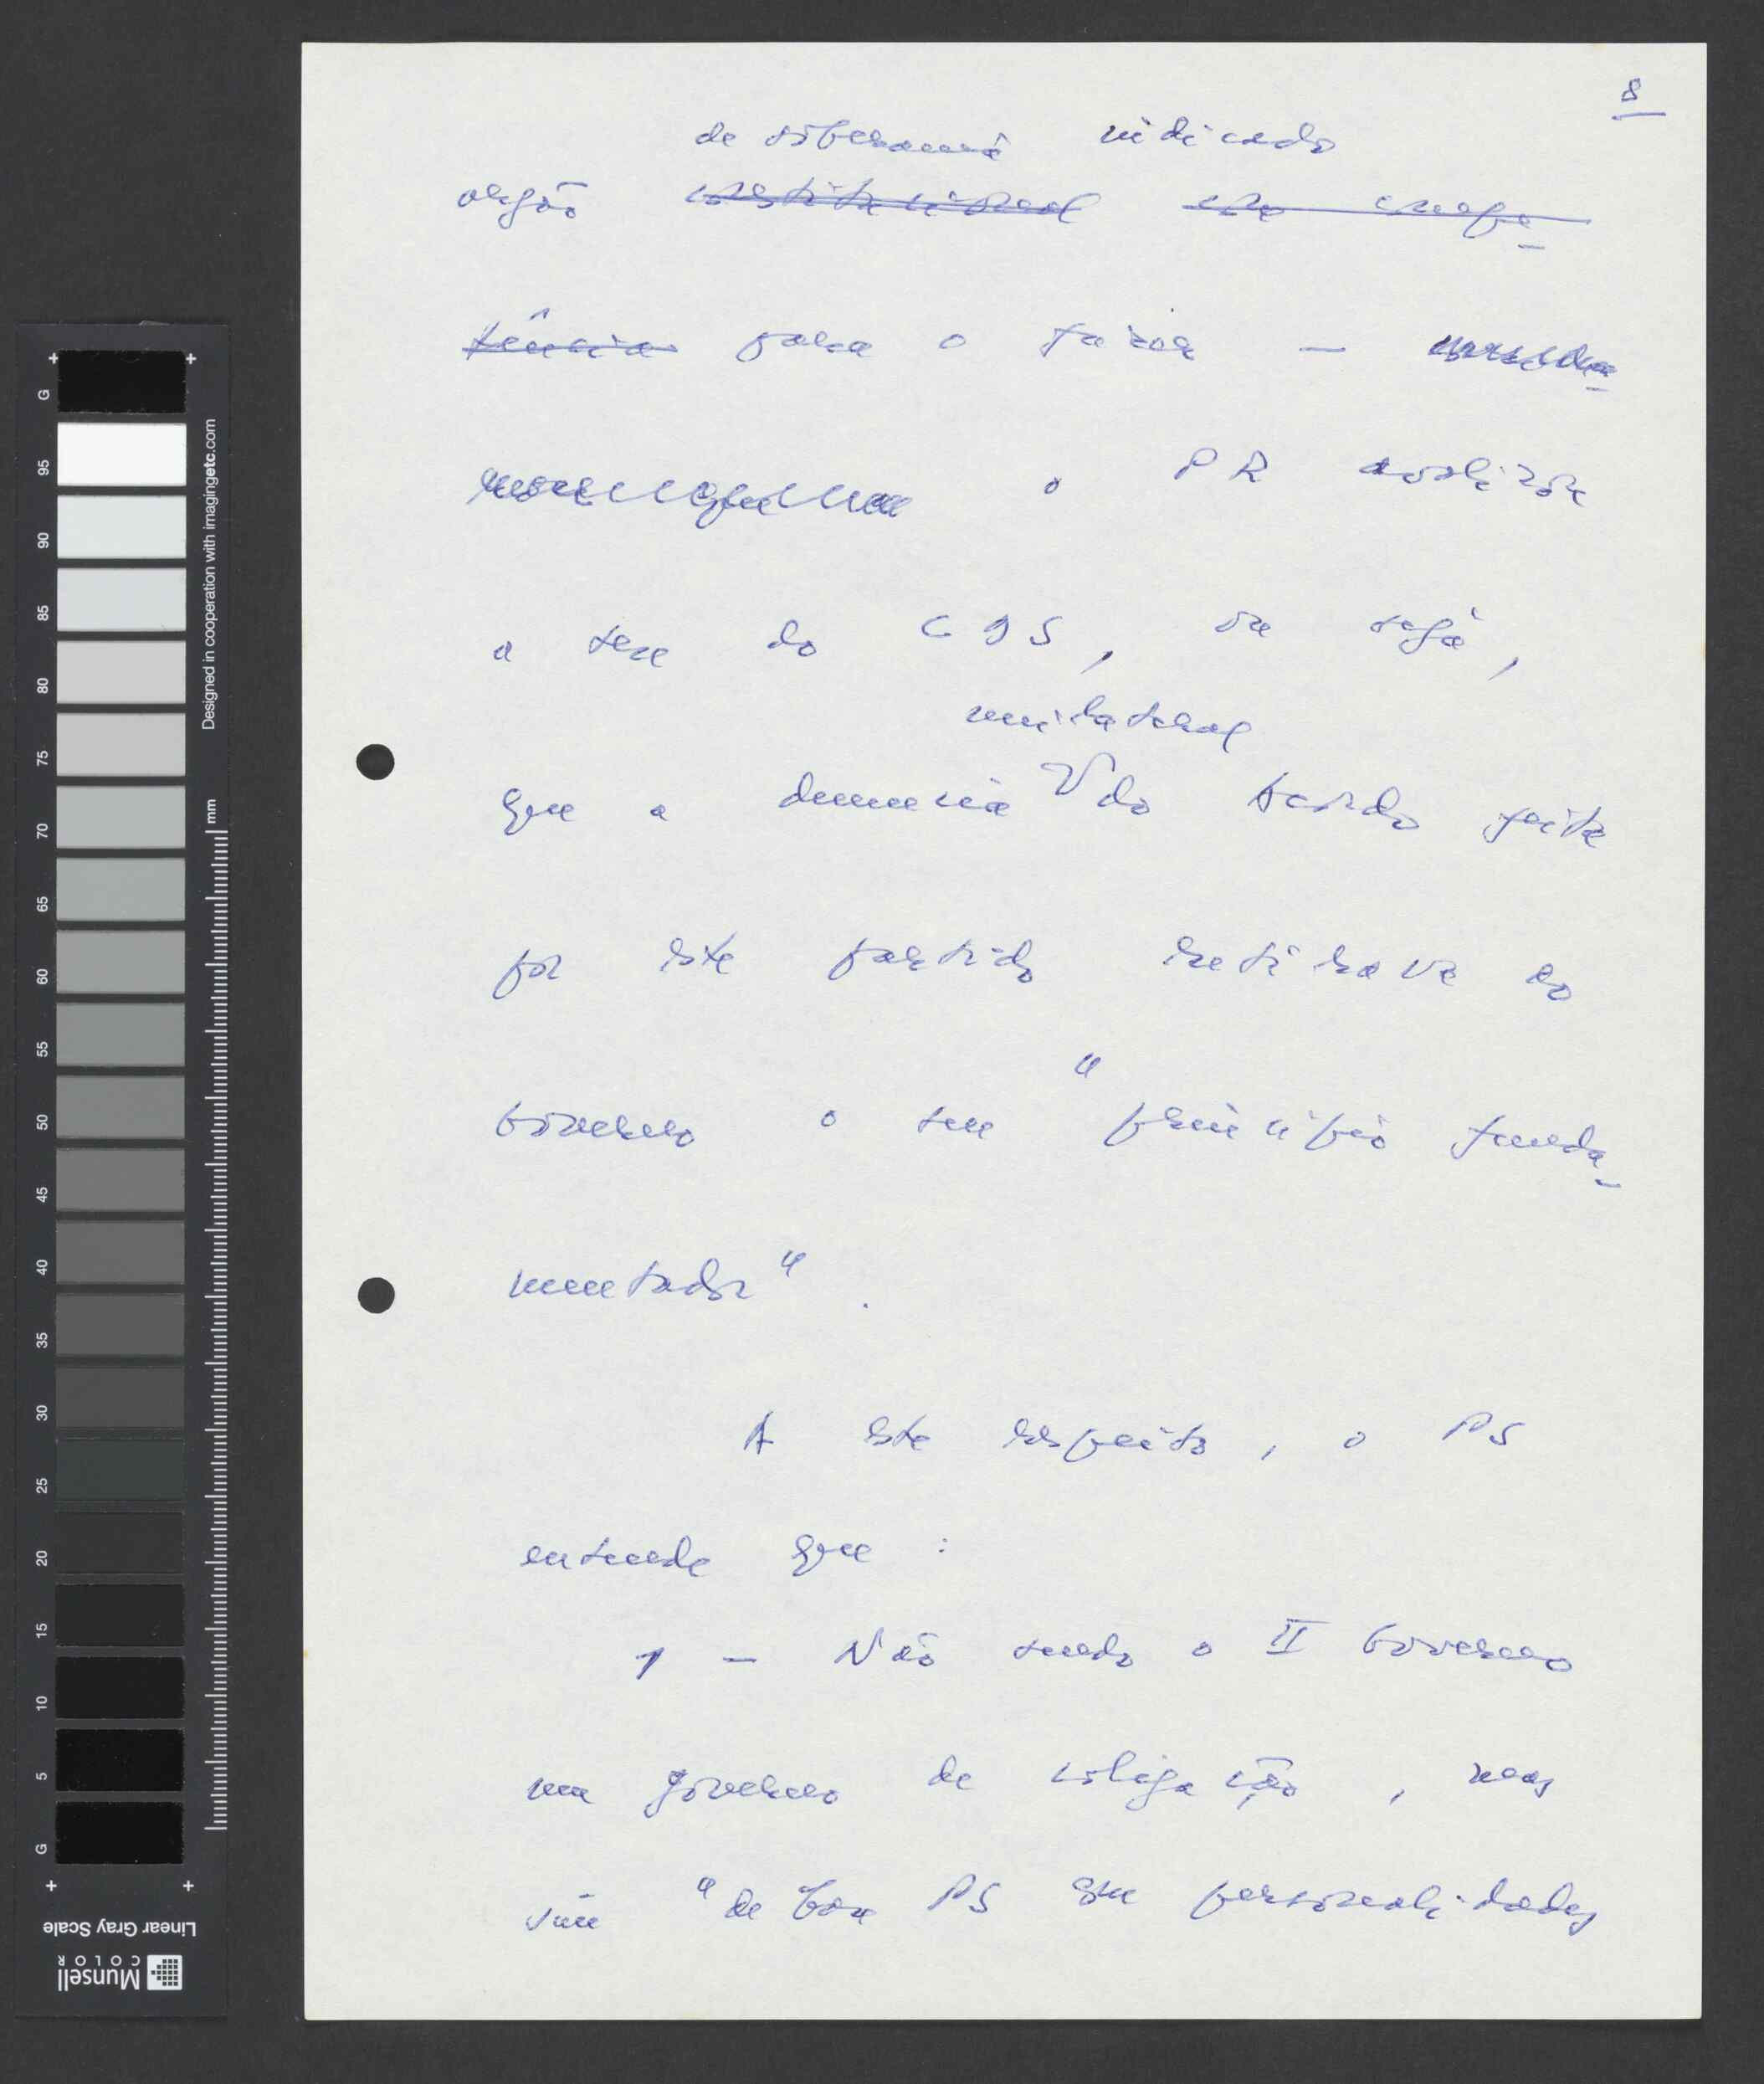 8
de soberania indicado
orgão constitucional com compe-
tência para o fazer —
o PR avalizou
a tese do CDS, ou seja,
unilateral
que a denúncia do Acordo feita
por este partido retirava ao
Governo o seu "princípio funda-
mentador".
A este respeito, o PS
entende que:
1 — Não sendo o II Governo
um governo de coligação, mas
sim "de base PS com personalidades
G 95 90 85 80 75 70 65 60 55 50 45 40 35 30 25 20 15 10 5 G
mm
Designed in cooperation with imagingetc.com
Linear Gray Scale
Munsell
COLOR